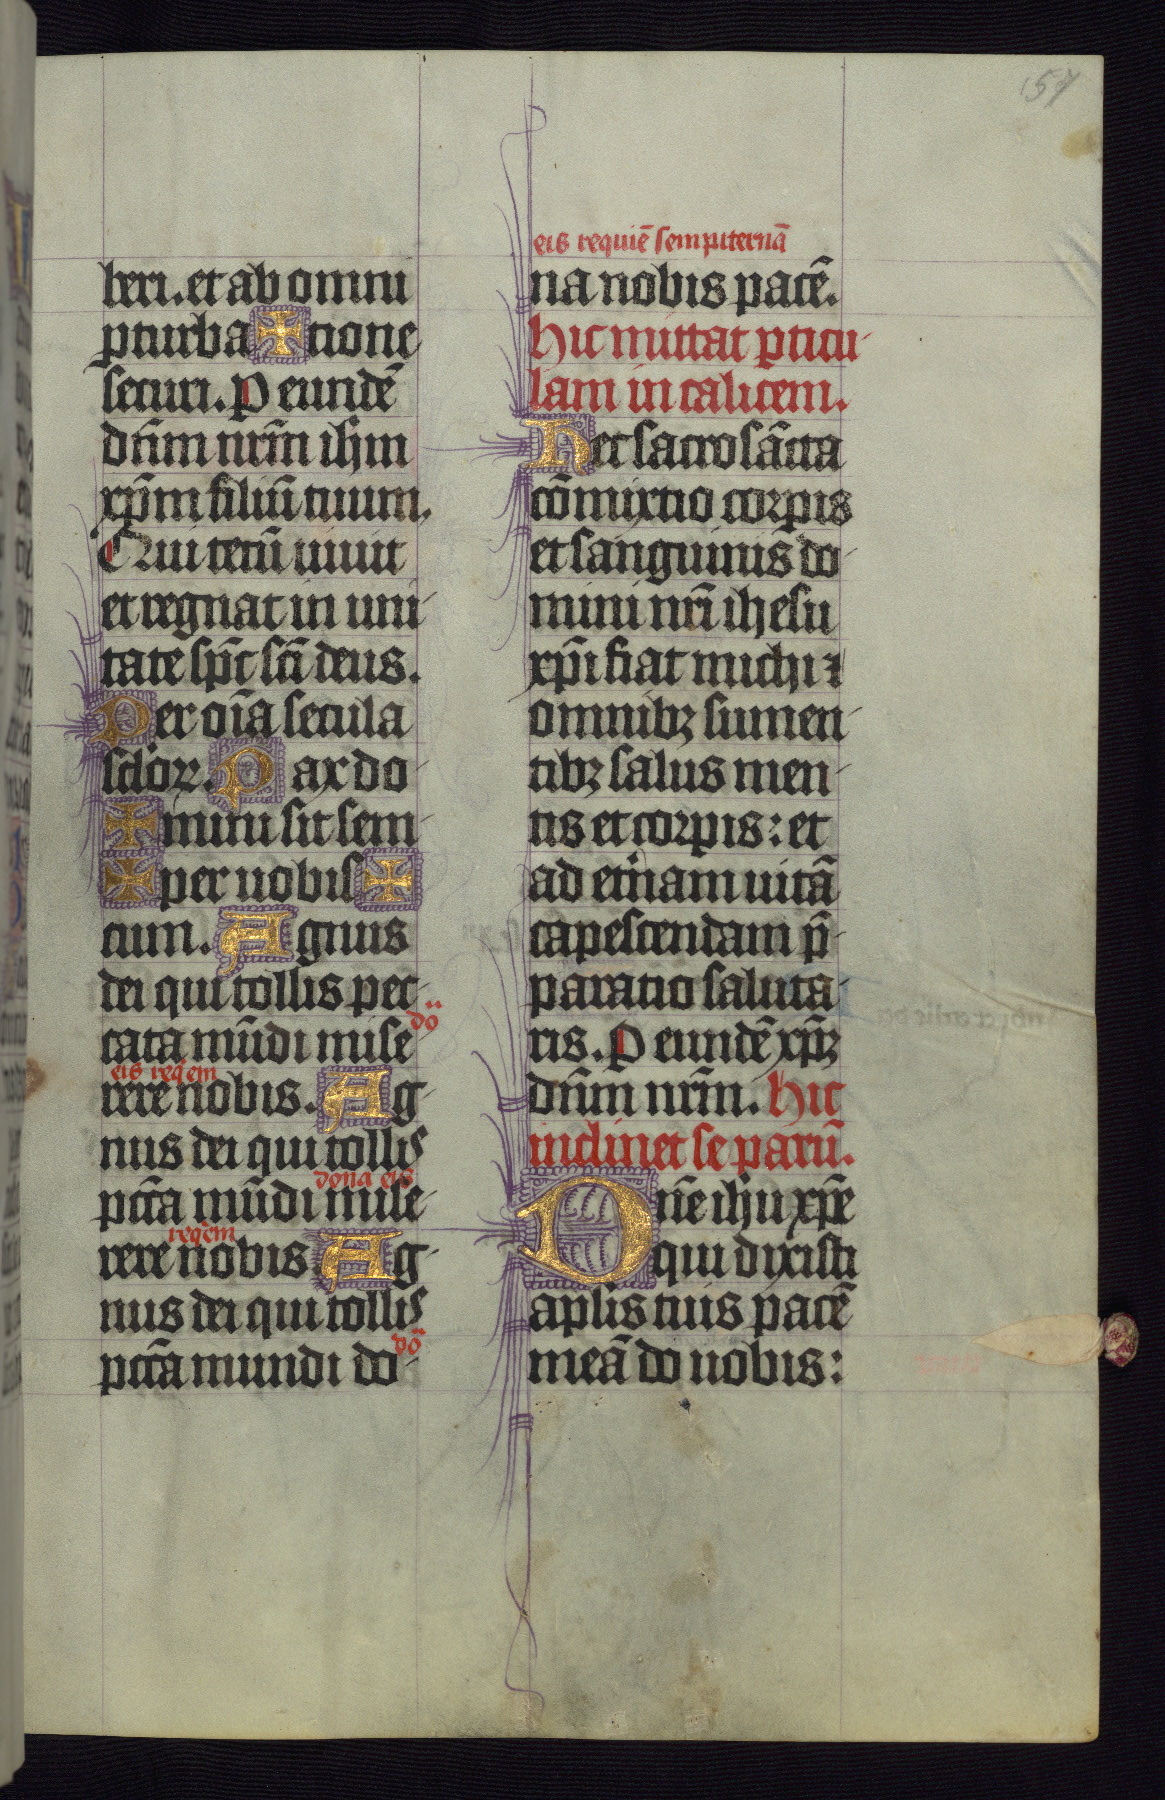 157
beri. et ab omni
pturba✠tione
securi. P eundē
dn̄m nr̄m ihm
xp̄m filiū tuum.
Qui tecū uiuit
et regnat in uni
tate sp̄c sc̄i deus.
Per oīa secula
sclor̄. Pax do
✠mini sit sem
✠per uobis✠
cum. Agnus
dei qui tollis pec
dō
cata mūdi mise
eis reqem
rere nobis. Ag
nus dei qui tollis
dona eis
pctā mūdi mise
reqem
rere nobis Ag
nus dei qui tollis
dō
pctā mundi do
eis requiē sempiternā
na nobis pacē.
hic mittat pticu
lam in calicem.
Hec sacrosācta
cōmixtio corpis
et sanguinis do
mini nr̄i ihesu
xp̄i fiat michi ⁊
omnibꝫ sumen
tibꝫ salus men
tis et corpis: et
ad et̄nam uitā
capescendam p̄
paratio saluta
ris. P eundē xp̄ꝫ
dn̄m nr̄m. hic
inclinet se parū.
Dn̄e ihu xp̄e
qui dixisti
aplis tuis pacē
meā do uobis: